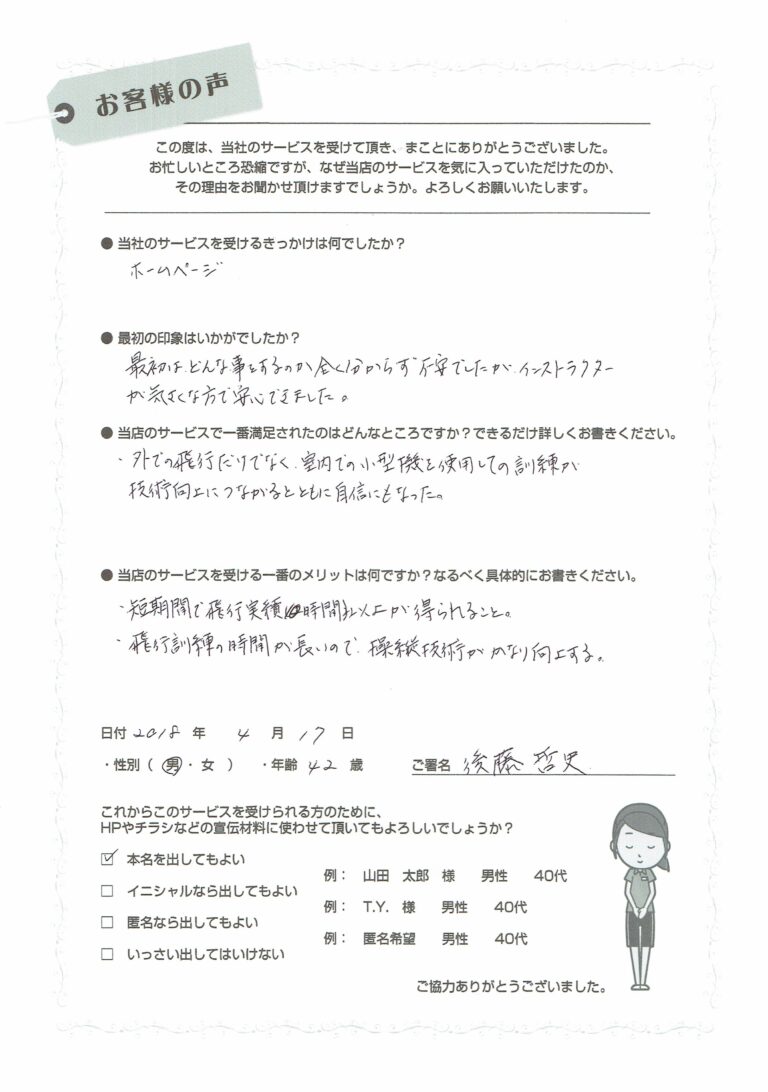 お客様の声
この度は、当社のサービスを受けて頂き、まことにありがとうございました。
お忙しいところ恐縮ですが、なぜ当店のサービスを気に入っていただけたのか、
その理由をお聞かせ頂けますでしょうか。よろしくお願いいたします。
● 当社のサービスを受けるきっかけは何でしたか?
ホームページ
● 最初の印象はいかがでしたか?
最初は、どんな事をするのか全く分からず不安でしたが、インストラクター
が気さくな方で安心できました。
● 当店のサービスで一番満足されたのはどんなところですか?できるだけ詳しくお書きください。
・外での飛行だけでなく、室内での小型機を使用しての訓練が
技術向上につながるとともに自信にもなった。
● 当店のサービスを受ける一番のメリットは何ですか?なるべく具体的にお書きください。
・短期間で飛行実績10時間以上が得られること。
・飛行訓練の時間が長いので、操縦技術がかなり向上する。
日付 2018 年 4 月 17 日
・性別 ( 男 ・ 女 ) ・年齢 42 歳 ご署名 後藤 哲史
これからこのサービスを受けられる方のために、
HPやチラシなどの宣伝材料に使わせて頂いてもよろしいでしょうか?
☑ 本名を出してもよい 例: 山田 太郎 様 男性 40代
□ イニシャルなら出してもよい 例: T.Y. 様 男性 40代
□ 匿名なら出してもよい 例: 匿名希望 男性 40代
□ いっさい出してはいけない
ご協力ありがとうございました。